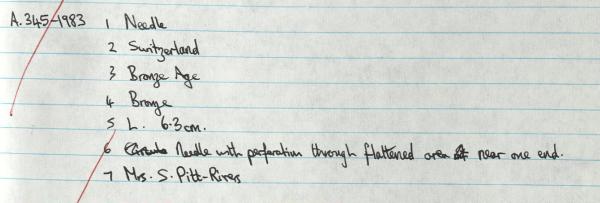 A.345-1983 1 Needle
2 Switzerland
3 Bronze Age
4 Bronze
5 L. 6.3cm.
6 Needle with perforation through flattened area near one end.
7 Mrs. S. Pitt-Rivers